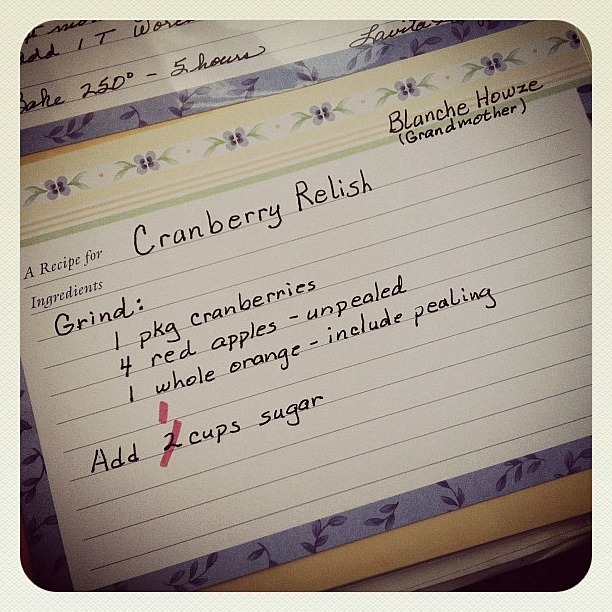 add 1 T
Bake 250° - 5 hours
Blanche Howze
(Grandmother)
A Recipe for Cranberry Relish
Ingredients
Grind:
1 pkg cranberries
4 red apples - unpealed
1 whole orange - include pealing
1
Add 2 cups sugar